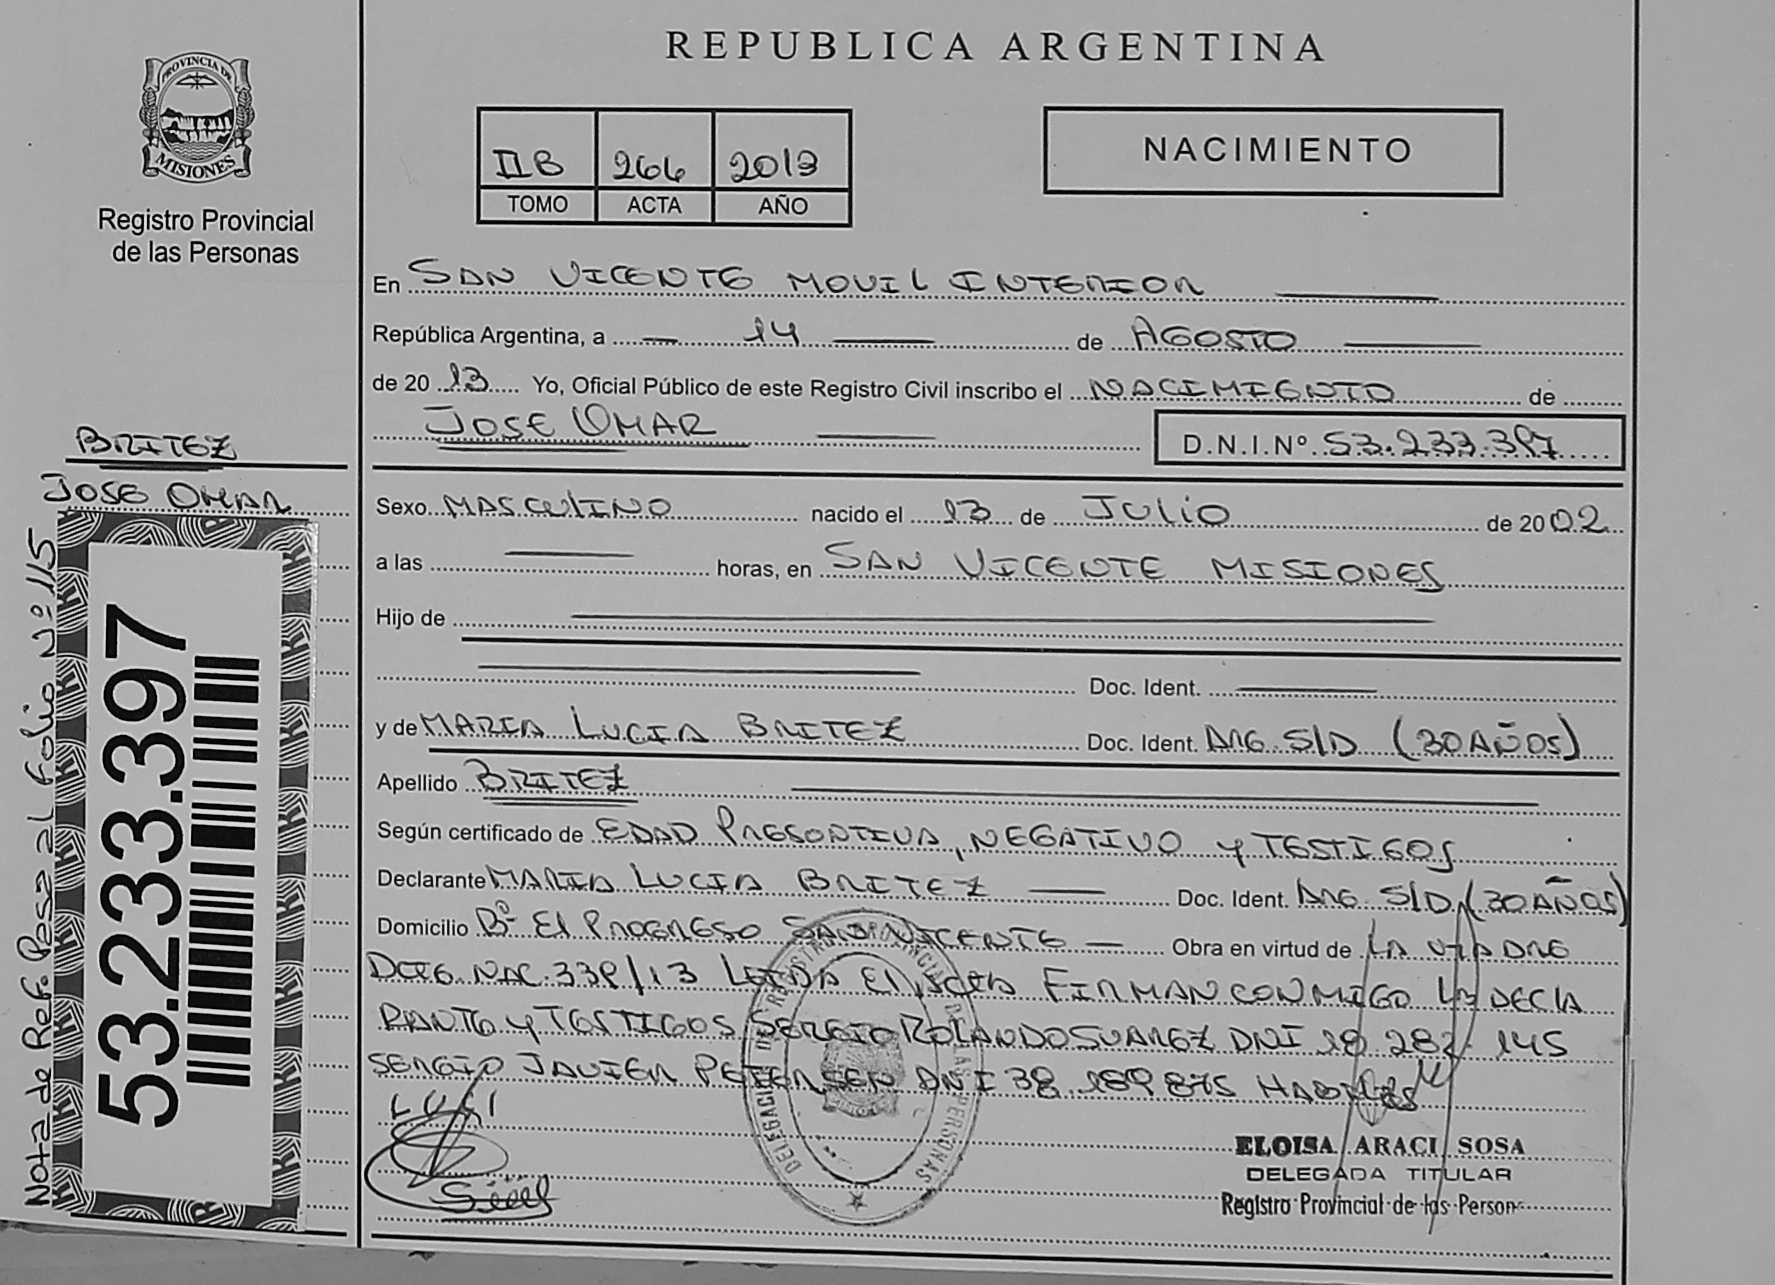 REPUBLICA ARGENTINA
PROVINCIA DE
MISIONES
Registro Provincial
de las Personas
IIB 266 2013
TOMO ACTA AÑO
NACIMIENTO
En SAN VICENTE MOVIL INTERIOR
República Argentina, a 14 de AGOSTO
de 20 13 Yo, Oficial Público de este Registro Civil inscribo el NACIMIENTO de
JOSE OMAR D.N.I.Nº 53.233.397
BRITEZ
JOSE OMAR
Nota de Ref. Pasa al Folio Nº 115
53.233.397
Sexo MASCULINO nacido el 13 de JULIO de 2002
a las horas, en SAN VICENTE MISIONES
Hijo de
Doc. Ident.
y de MARIA LUCIA BRITEZ Doc. Ident. ARG S/D (30 AÑOS)
Apellido BRITEZ
Según certificado de EDAD PRESONTIVA, NEGATIVO Y TESTIGOS
Declarante MARIA LUCIA BRITEZ Doc. Ident. ARG S/D (30 AÑOS)
Domicilio Bº El PROGRESO SAN VICENTE Obra en virtud de
NAC. 339/13 LEIDA El ACTA FIRMAN CONMIGO LA DECLA
RANTE Y TESTIGOS SERGIO ROLANDO SUAREZ DNI 18 282 145
SERGIO JAVIER PETERSEN DNI 38 189 875 HABILES
LUSI
DELEGACION REGISTRO PROVINCIAL DE LAS PERSONAS
ELOISA ARACI SOSA
DELEGADA TITULAR
Registro Provincial de las Person